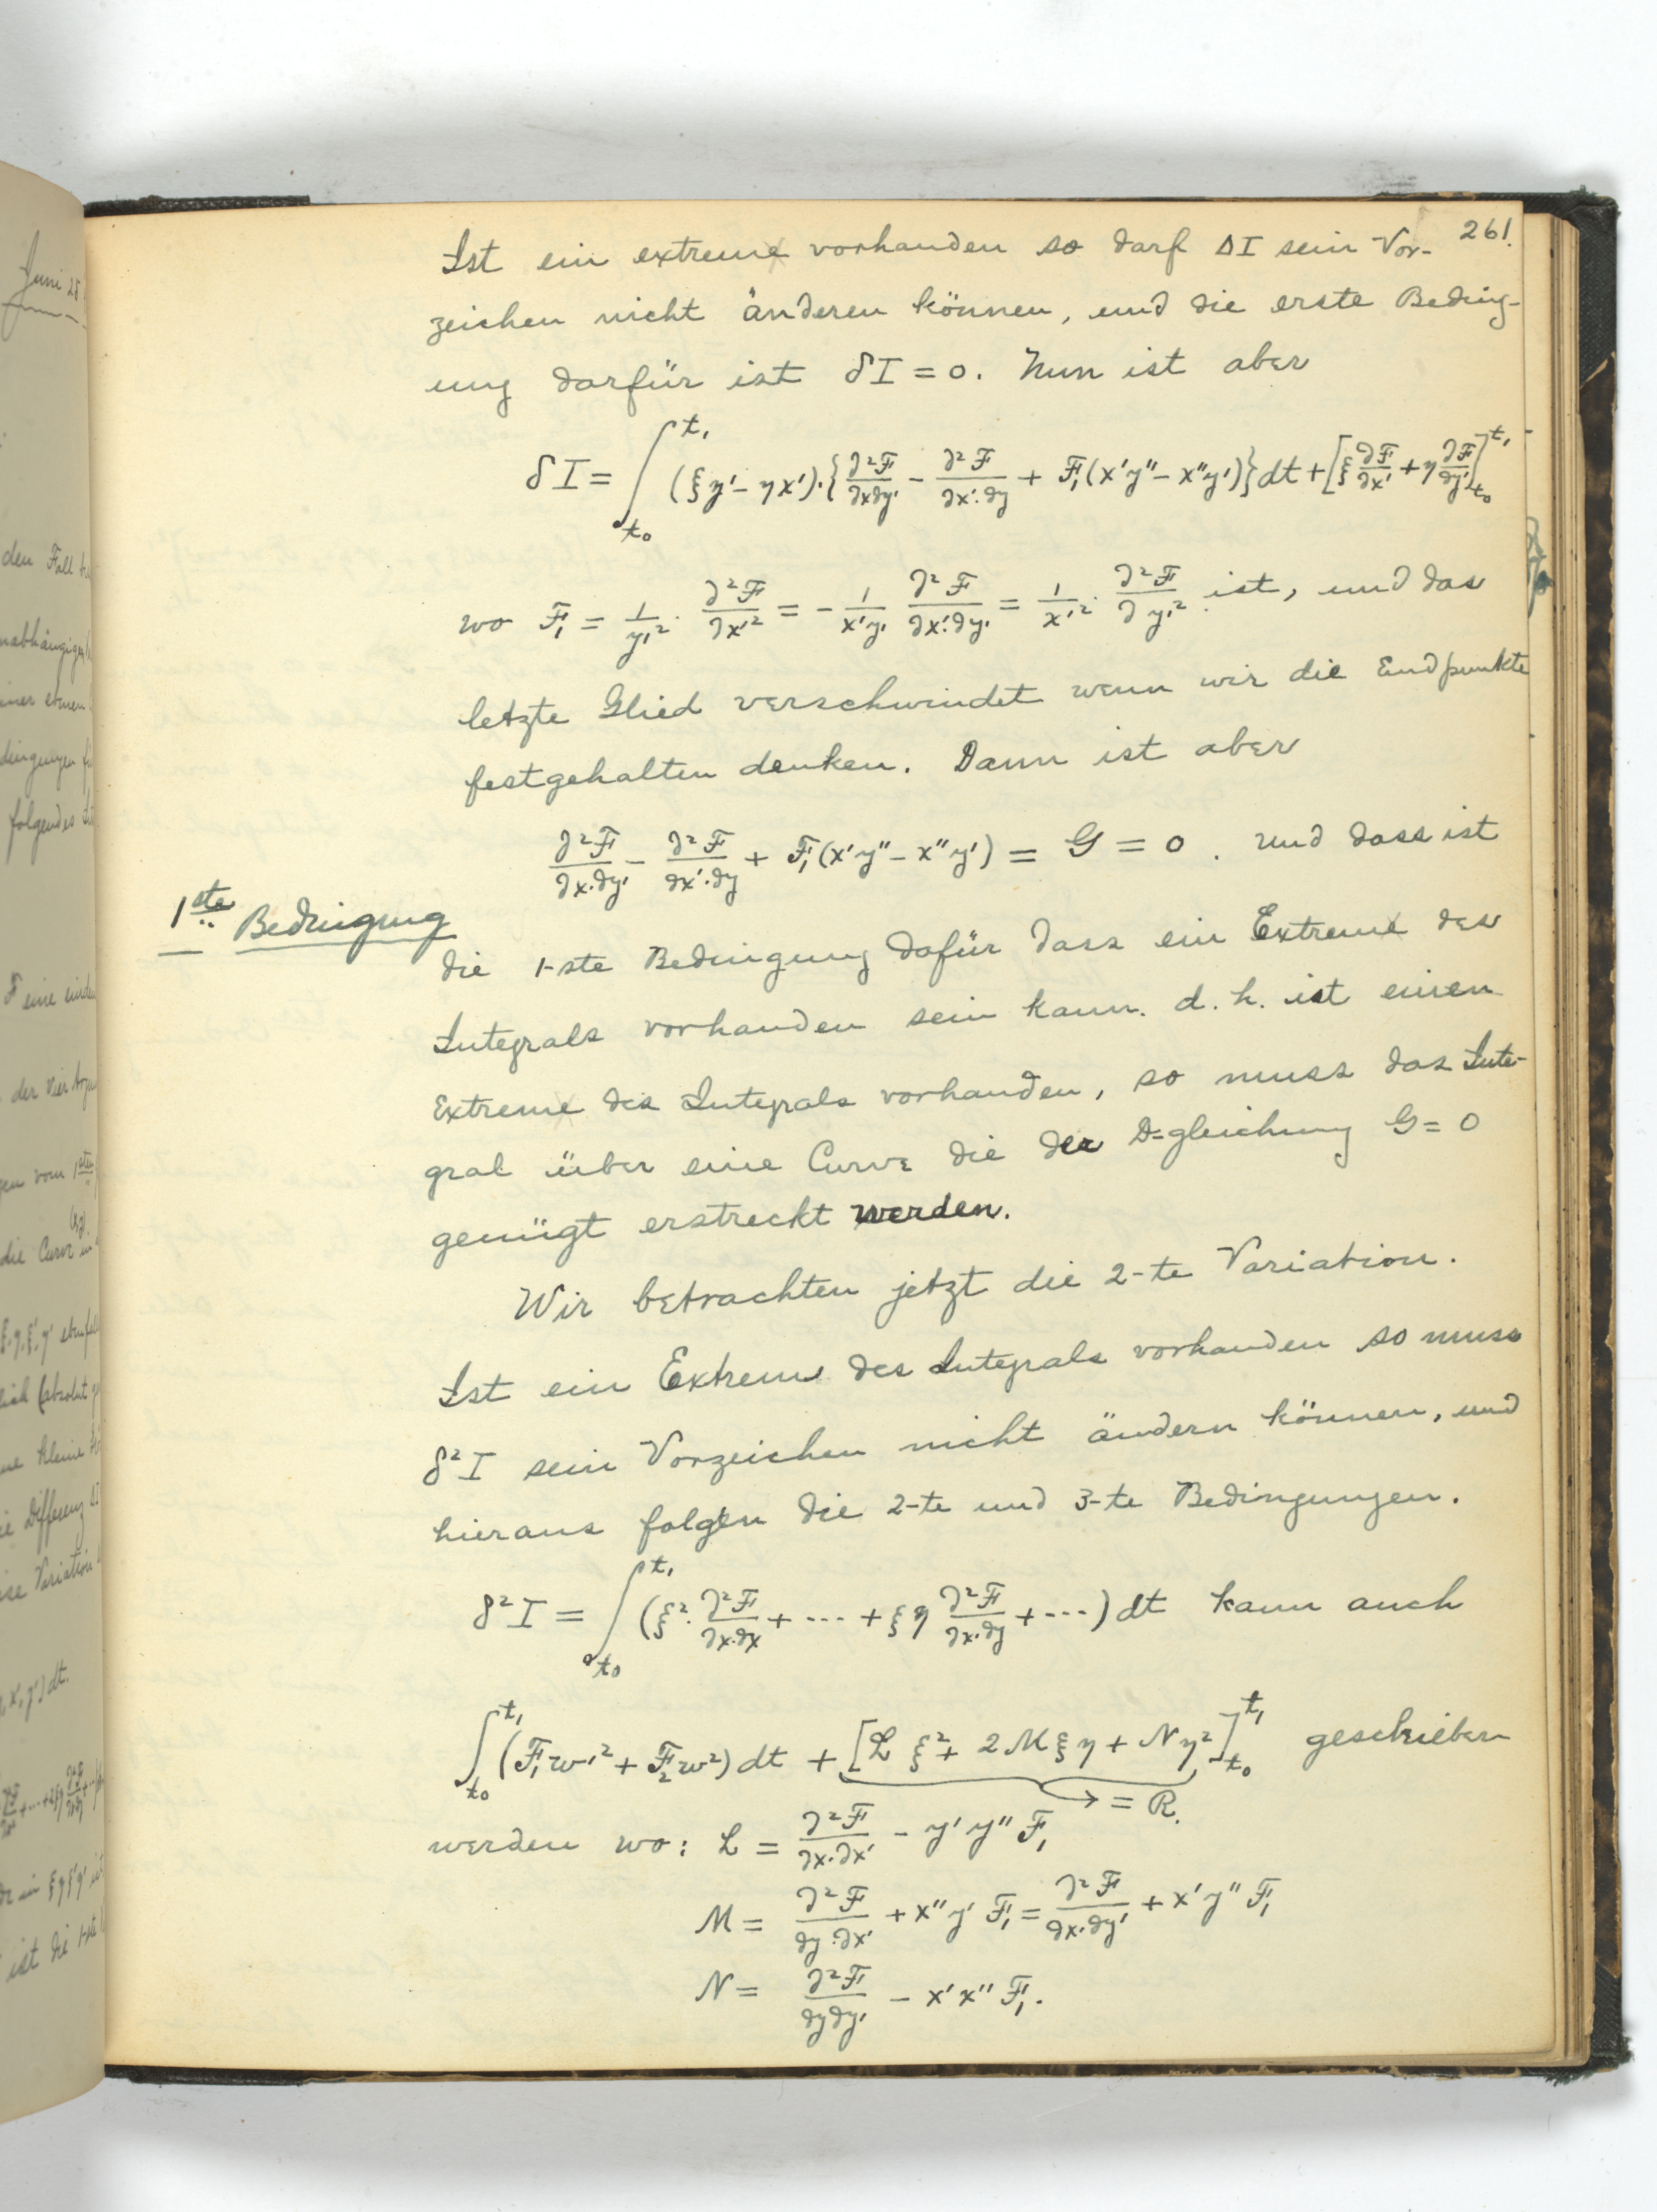 261.
Ist ein extrem vorhanden so darf ΔI sein Vor-
zeichen nicht änderen können, und die erste Beding-
ung darfür ist δI = 0. Nun ist aber
δI = ∫_{t₀}^{t₁} (ξy' - ηx')·{∂²F/∂x∂y' - ∂²F/∂x'·∂y + F₁(x'y'' - x''y')}dt + [ξ ∂F/∂x' + η ∂F/∂y']_{t₀}^{t₁}
wo F₁ = 1/y'² · ∂²F/∂x'² = - 1/x'y' ∂²F/∂x'·∂y' = 1/x'² · ∂²F/∂y'² ist, und das
letzte Glied verschwindet wenn wir die Endpunkte
festgehalten denken. Dann ist aber
∂²F/∂x·∂y' - ∂²F/∂x'·∂y + F₁(x'y'' - x''y') = G = 0. und dass ist
1ste Bedingung
die 1-ste Bedingung dafür dass ein Extrem des
Integrals vorhanden sein kann. d. h. ist einen
Extrem des Integrals vorhanden, so muss das Inte-
gral über eine Curve die der D=gleichung G = 0
genügt erstreckt werden.
Wir betrachten jetzt die 2-te Variation.
Ist ein Extrem des Integrals vorhanden so muss
δ²I sein Vorzeichen nicht ändern können, und
hieraus folgen die 2-te und 3-te Bedingungen.
δ²I = ∫_{t₀}^{t₁} (ξ²·∂²F/∂x·∂x + ··· + ξη ∂²F/∂x·∂y + ···) dt kann auch
∫_{t₀}^{t₁} (F₁w'² + F₂w²) dt + [L ξ² + 2Mξη + Nη²]_{t₀}^{t₁} geschrieben
→ = R.
werden wo: L = ∂²F/∂x·∂x' - y'y''F₁
M = ∂²F/∂y·∂x' + x''y' F₁ = ∂²F/∂x·∂y' + x'y''F₁
N = ∂²F/∂y∂y' - x'x''F₁.
Juni 28
den Fall
folgendes
F eine
die Curve in
ξ, η, ξ', η'
kleine
die Differenz ΔI
Variation
x', y') dt.
ist die 1-ste